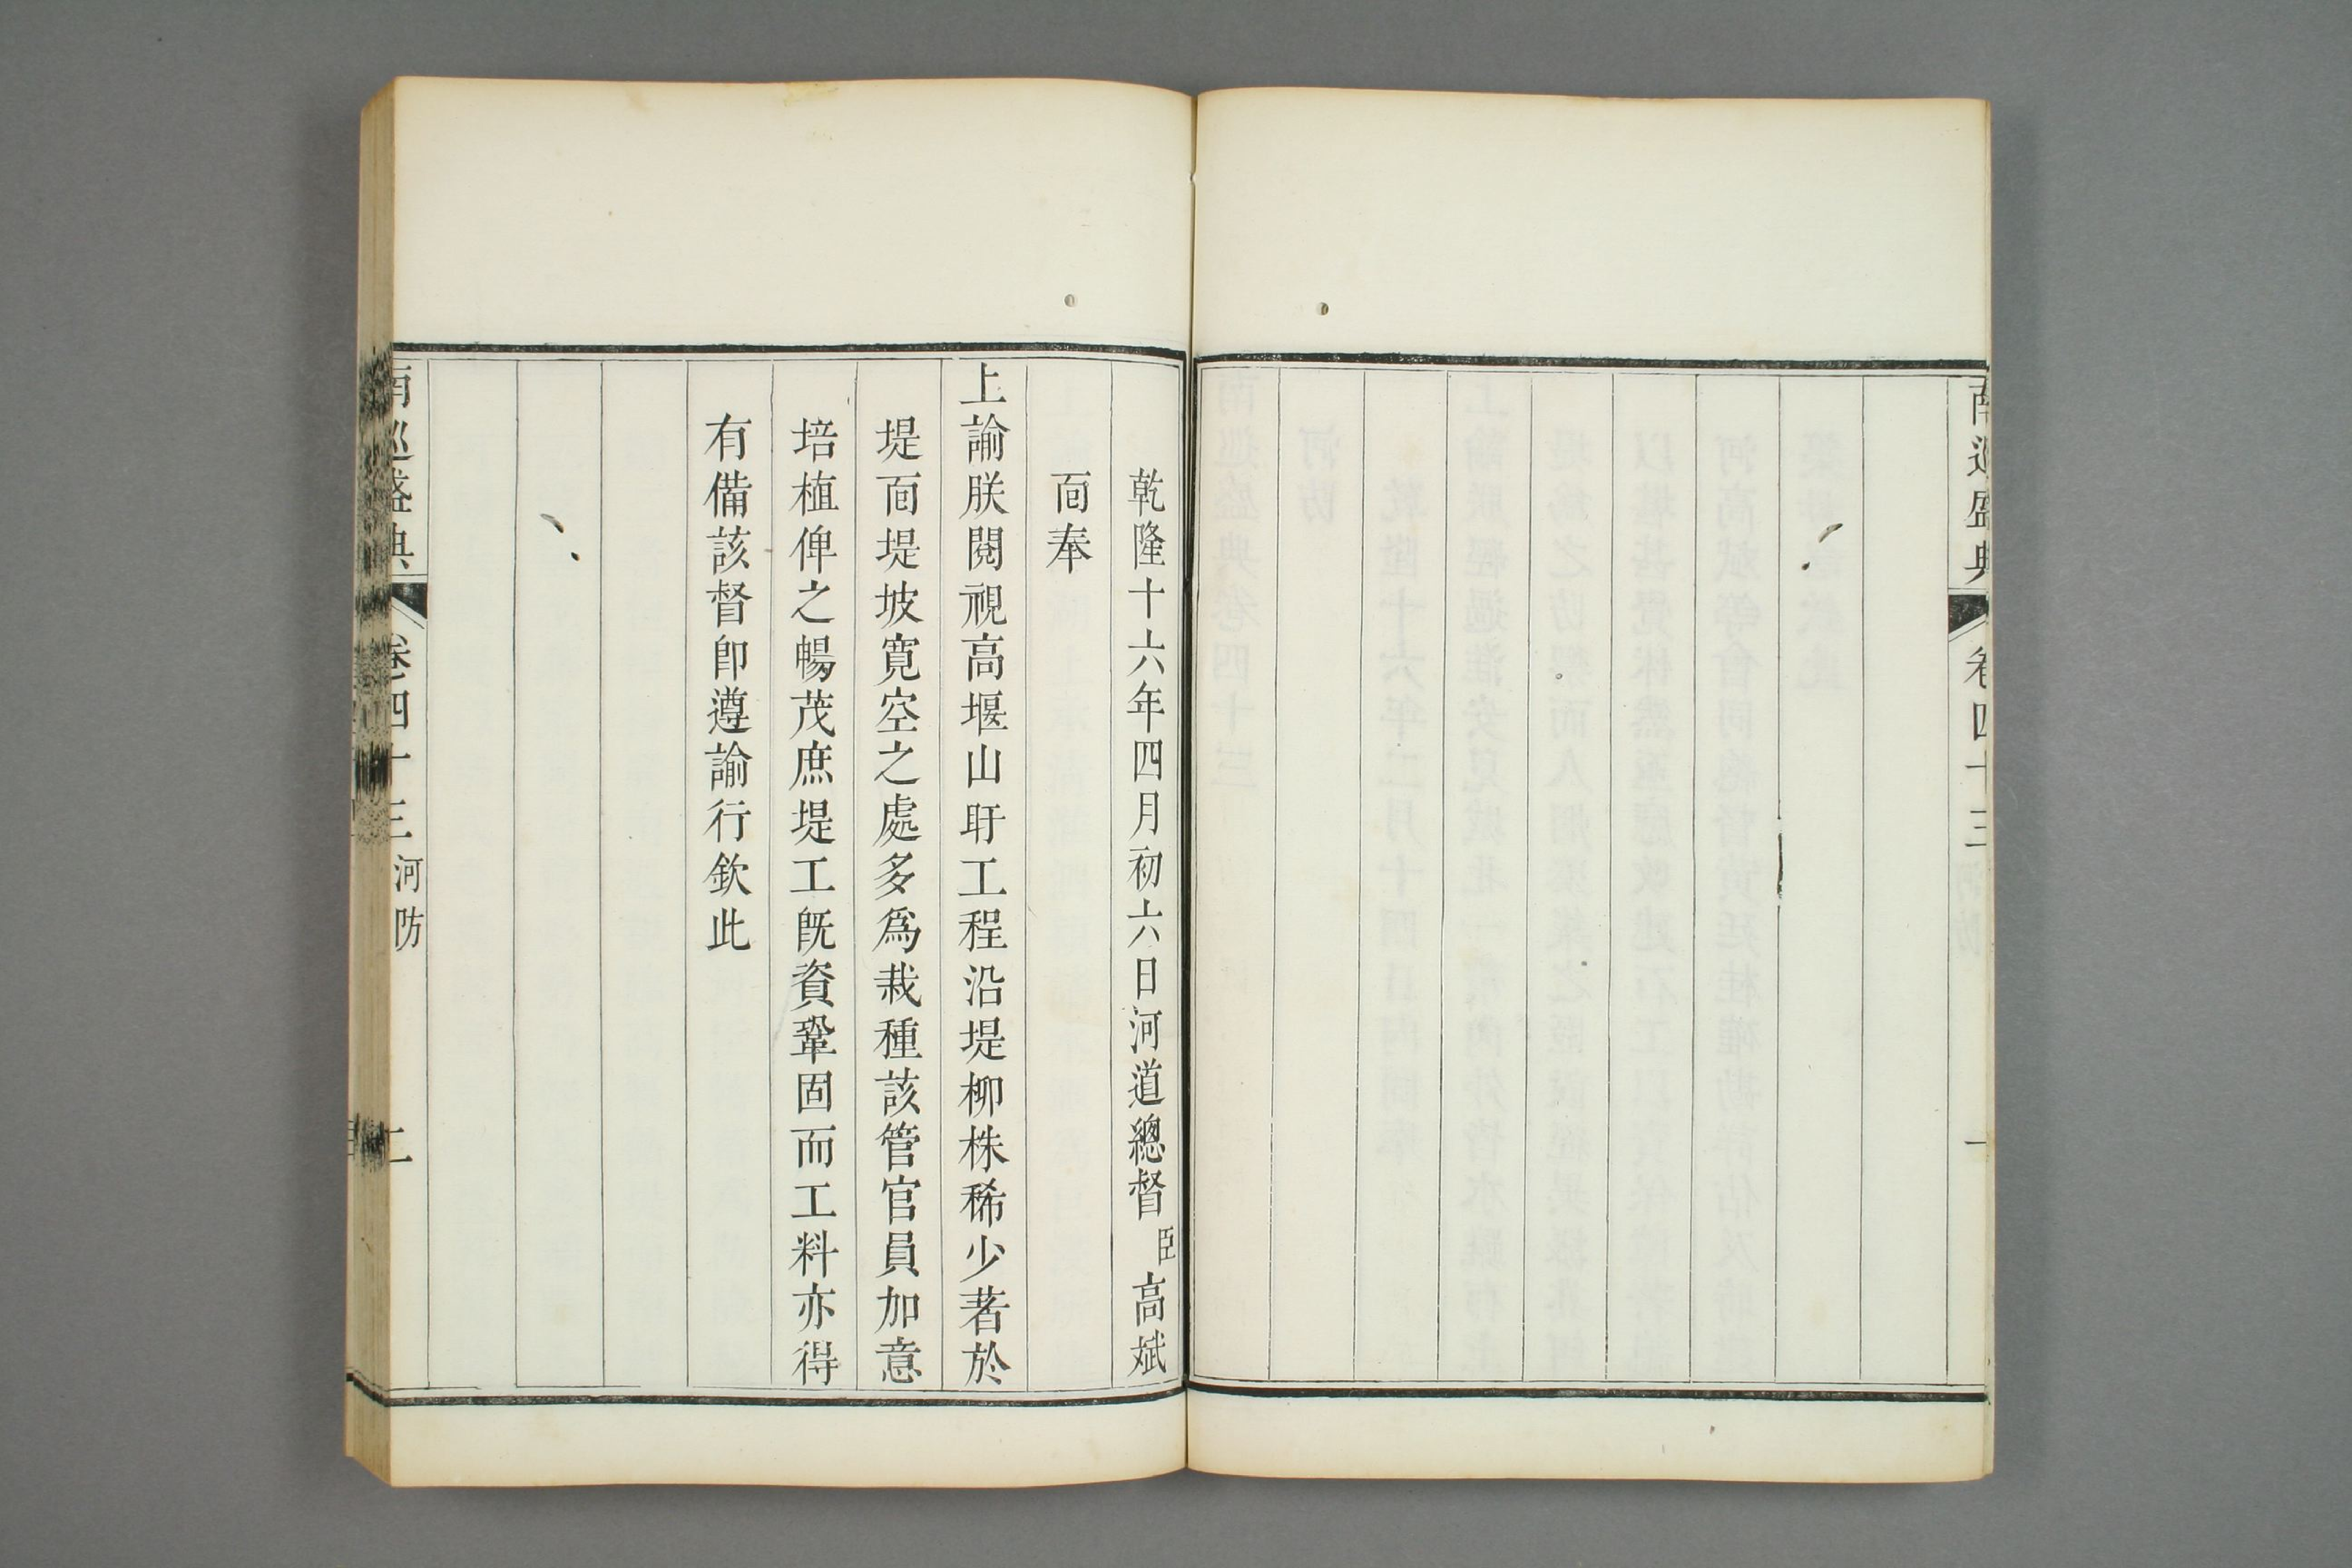 南巡盛典 卷四十三 一
乾隆十六年四月初六日河道總督臣高斌
面奉
上諭朕閱視高堰山盱工程沿堤柳株稀少著於
堤面堤坡寬空之處多為栽種該管官員加意
培植俾之暢茂庶堤工既資鞏固而工料亦得
有備該督卽遵諭行欽此
南巡盛典 卷四十三 河防 二